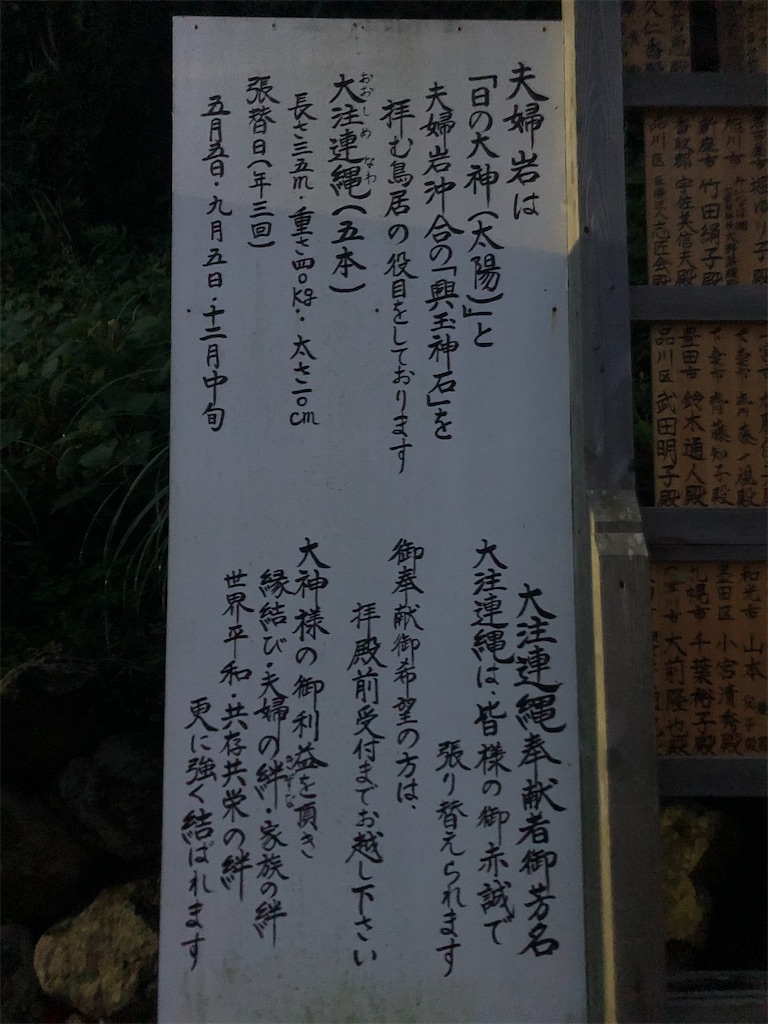 夫婦岩は
「日の大神(太陽)」と
夫婦岩沖合の「興玉神石」を
拝む鳥居の役目をしております
大注連縄(五本)
おおしめなわ
長さ三五m・重さ四〇kg・太さ一〇cm
張替日(年三回)
五月五日・九月五日・十二月中旬
大注連縄奉献者御芳名
大注連縄は、皆様の御赤誠で
張り替えられます
御奉献御希望の方は、
拝殿前受付までお越し下さい
大神様の御利益を頂き
縁結び・夫婦の絆・家族の絆
きずな
世界平和・共存共栄の絆
更に強く結ばれます
新座市 竹田絹子殿
宇佐美信夫殿
品川区
志匠会殿
墨田市 鈴木通人殿
品川区 武田明子殿
和光市 山本
墨田区 小宮清秀殿
札幌市 千葉裕子殿
大前隆也殿